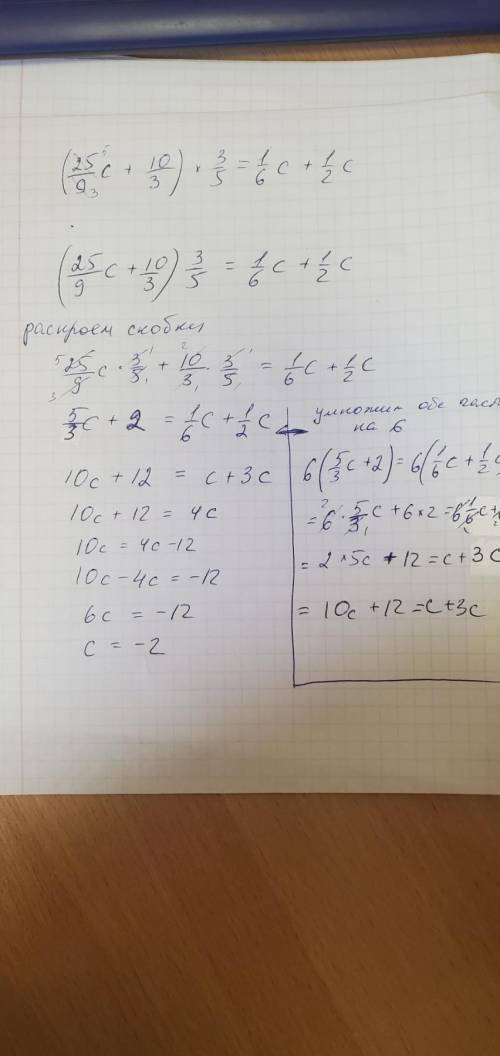 (25/9 c + 10/3) × 3/5 = 1/6 c + 1/2 c
(25/9 c + 10/3) 3/5 = 1/6 c + 1/2 c
раскроем скобки
25/9 c · 3/5 + 10/3 · 3/5 = 1/6 c + 1/2 c
5/3 c + 2 = 1/6 c + 1/2 c
10c + 12 = c + 3c
10c + 12 = 4c
10c = 4c - 12
10c - 4c = -12
6c = -12
c = -2
умножим обе
на 6
6(5/3 c + 2) = 6(1/6 c + 1/2 c
= 6 · 5/3 c + 6 × 2 = 6 · 1/6 c +
= 2 × 5c + 12 = c + 3c
= 10c + 12 = c + 3c